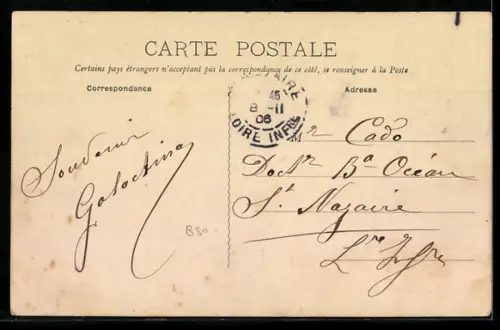 CARTE POSTALE
Certains pays étrangers n'acceptant pas la correspondance de ce côté, se renseigner à la Poste
Correspondance
Adresse
45
8 -11
06
LOIRE INFRE
Souvenir
B80
Mr Cado
Bn Océan
St Nazaire
Lre Infre